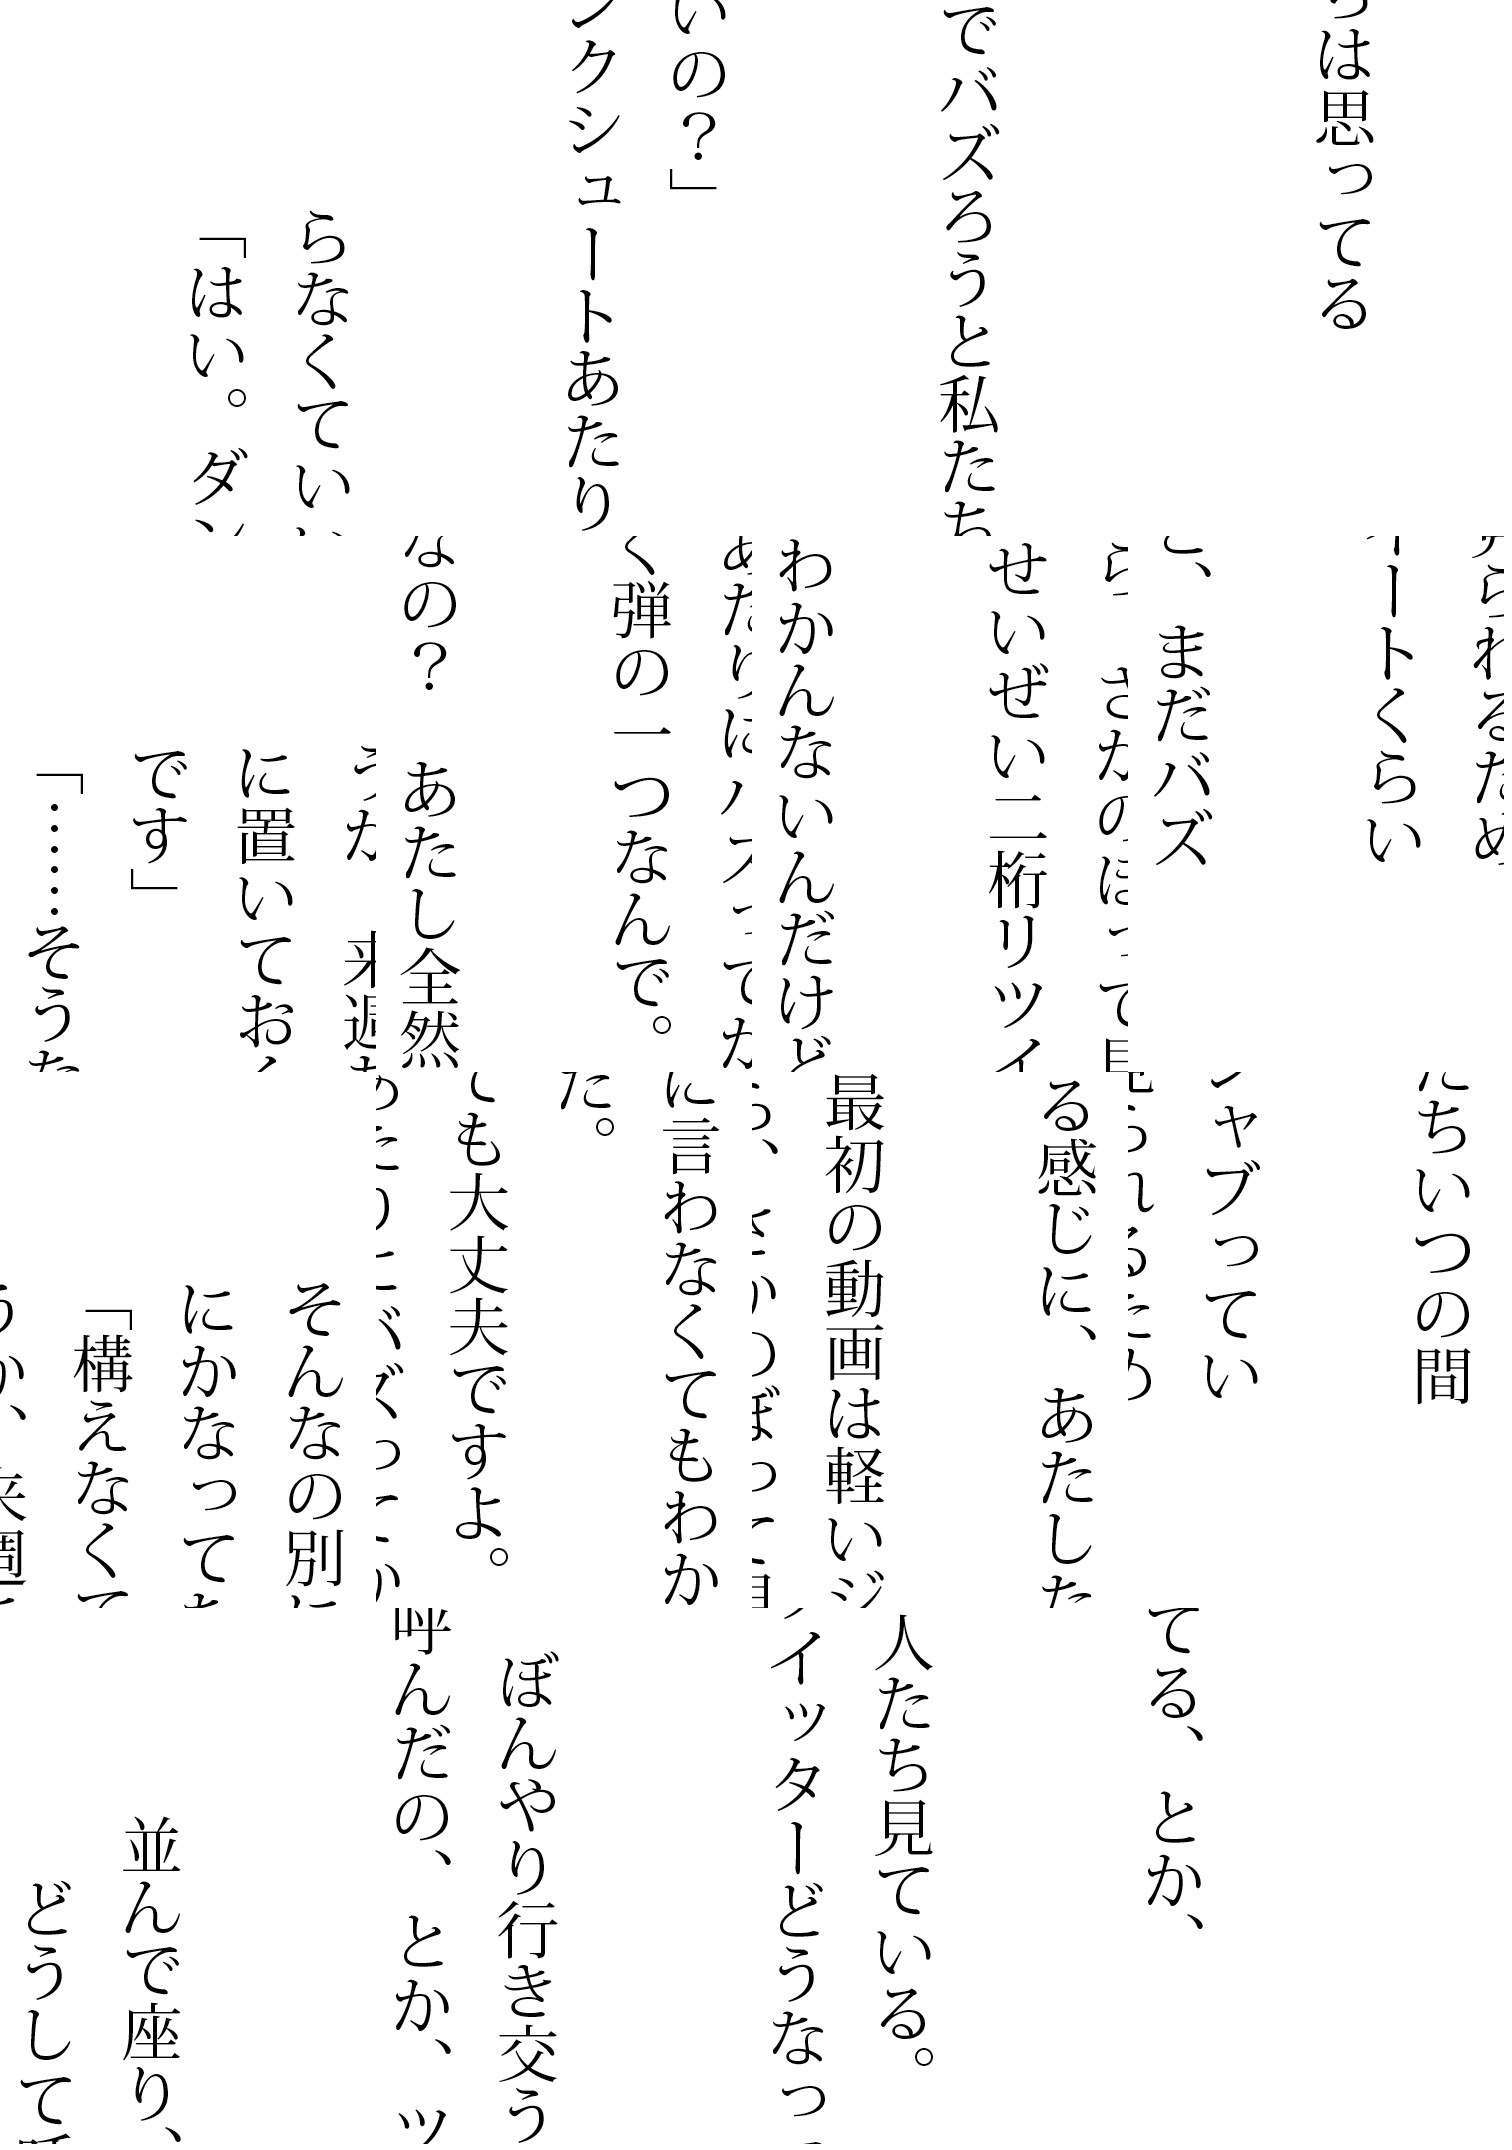 は思ってる
でバズろうと私たち
いの？」
ンクシュートあたり
らなくてい
「はい。ダン
られるため
ートくらい
、まだバズ
せいぜい二桁リツイ
わかんないんだけど
く弾の一つなんで。
なの？　あたし全然
に置いてお
です」
「……そうな
ちいつの間
ャブってい
る感じに、あたした
最初の動画は軽いジ
に言わなくてもわか
た。
ても大丈夫ですよ。
そんなの別に
にかなって
「構えなくて
てる、とか、
人たち見ている。
イッターどうなっ
ぼんやり行き交う
呼んだの、とか、ツ
並んで座り、
どうして